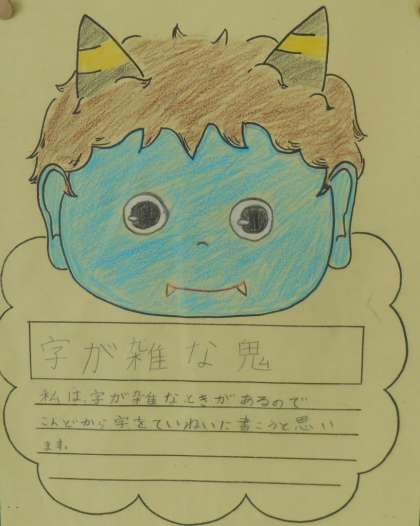 字が雑な鬼
私は、字が雑なときがあるので
こんどから字をていねいに書こうと思い
ます。